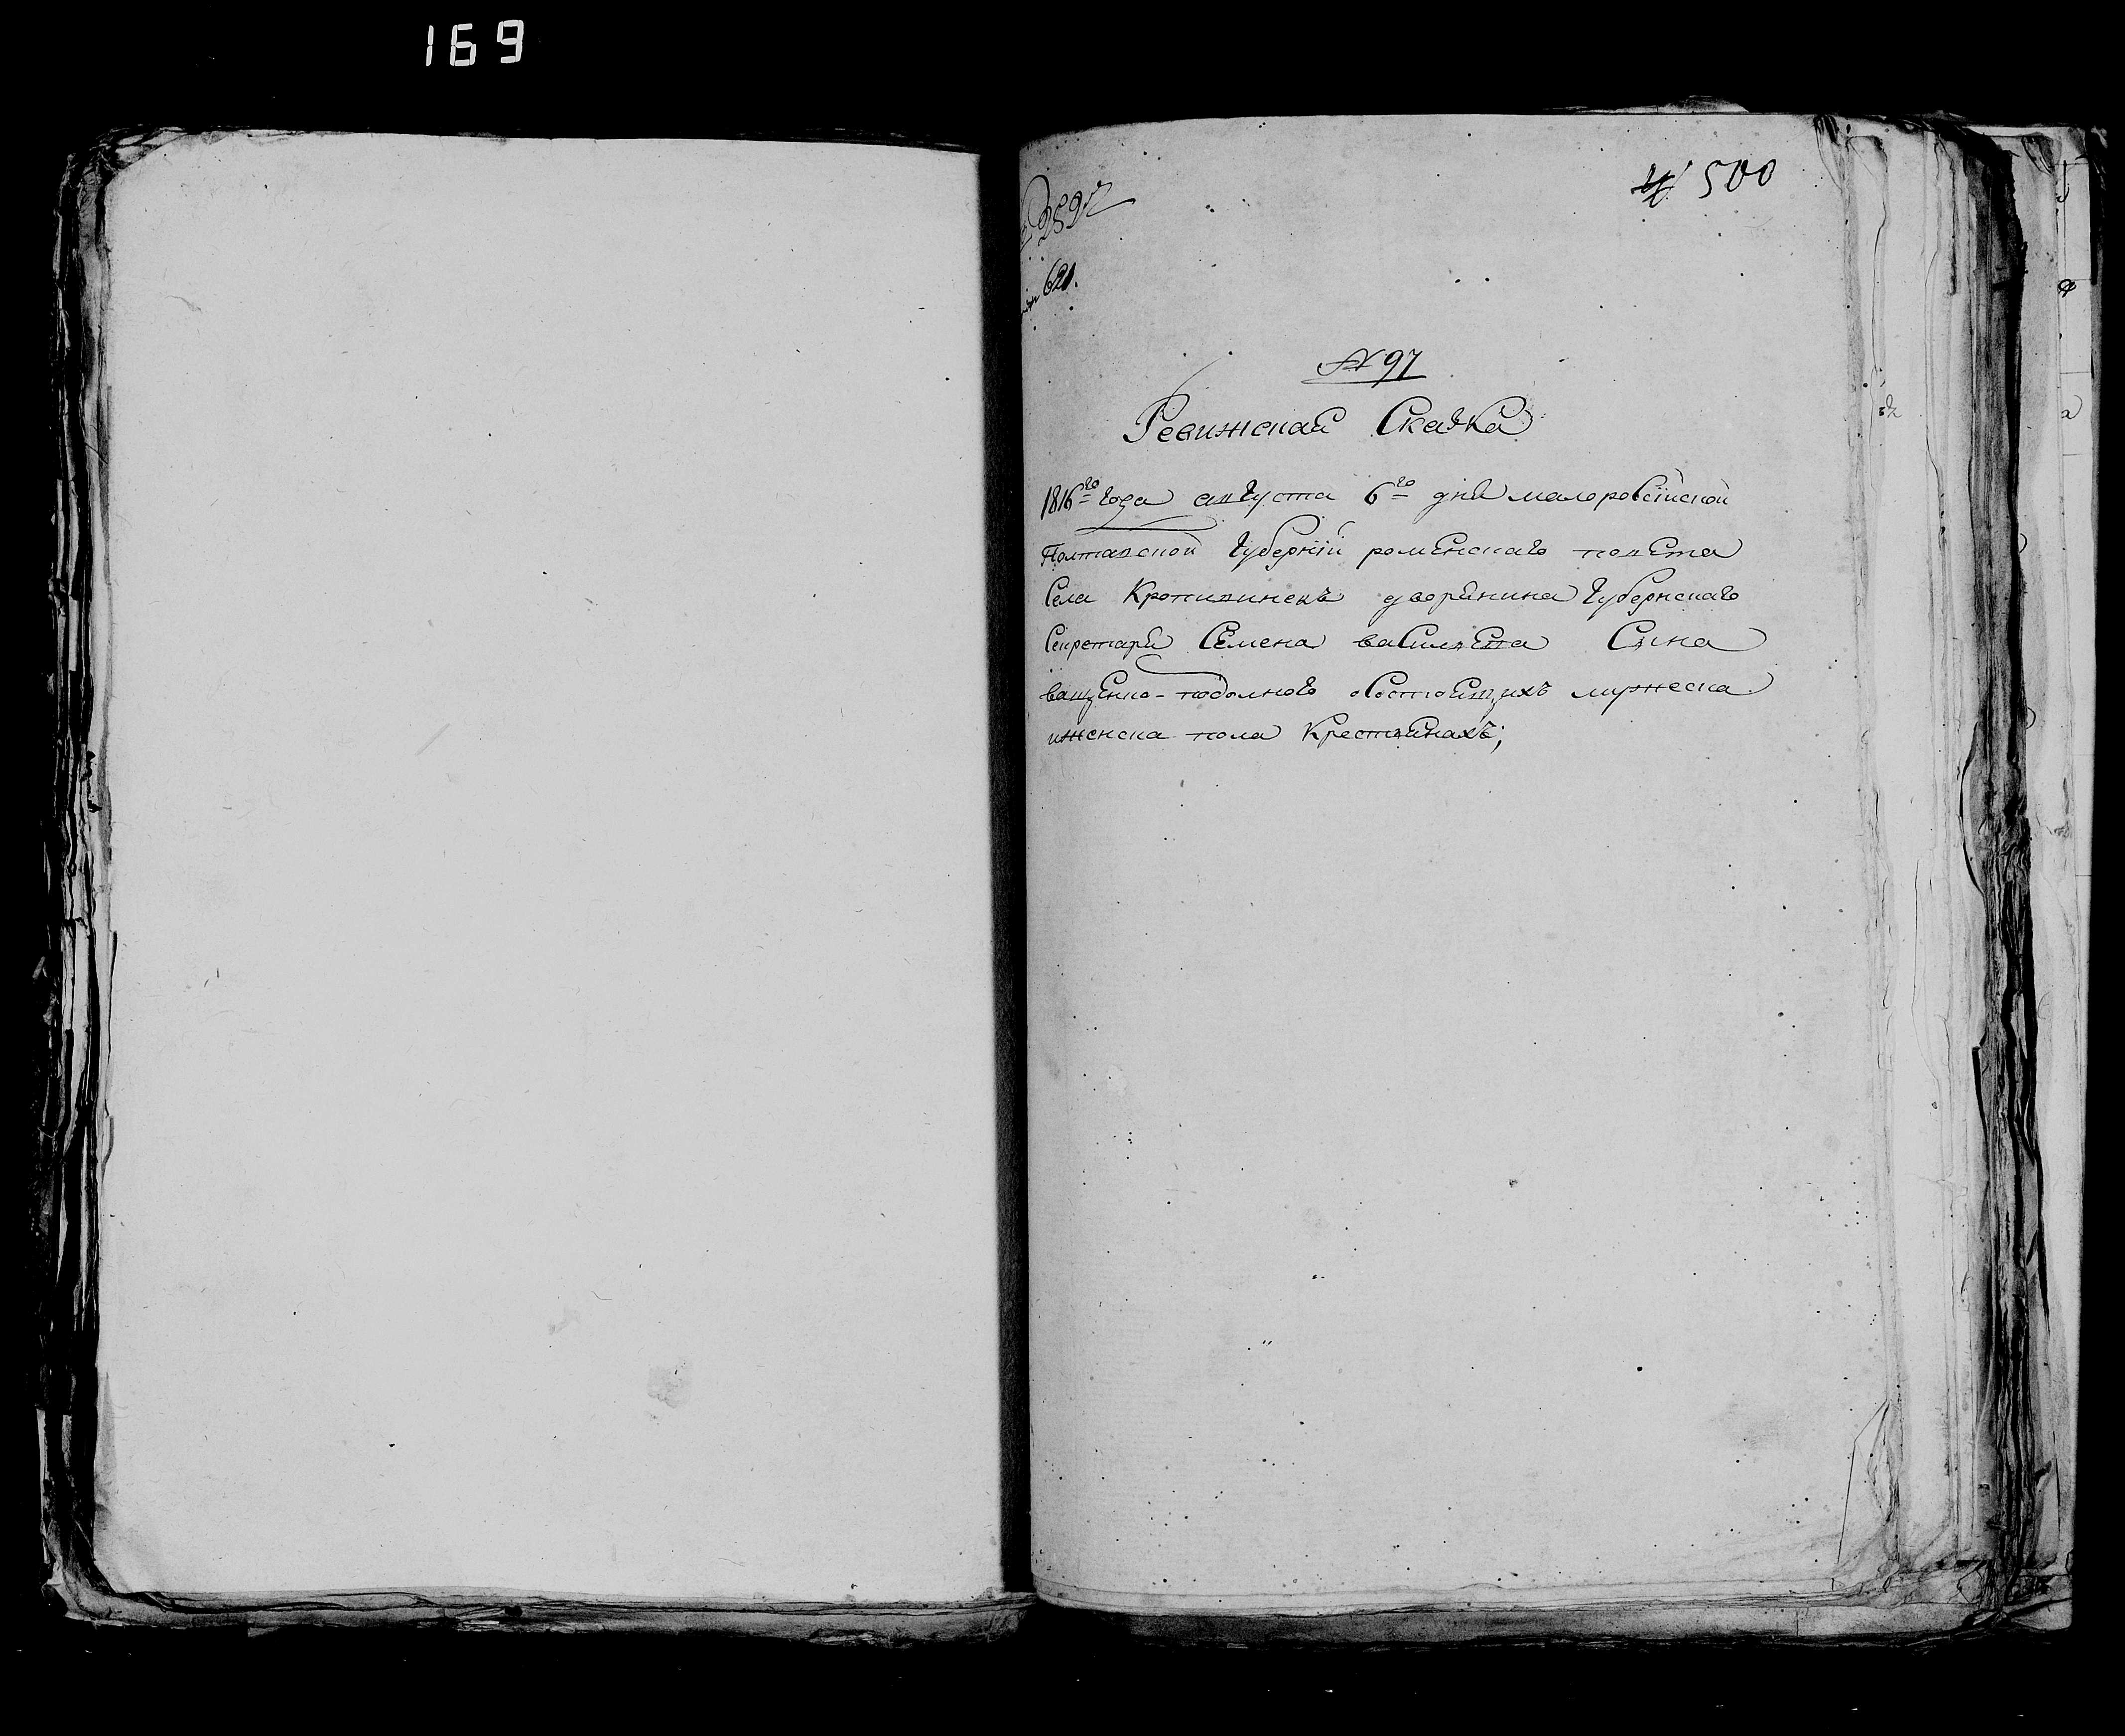 169
500
2897
621.
№ 97
Ревижская Сказка
1816го года августа 6го дня малоросійской
Полтавской губерніи роменскаго повета
Села Кропивинекъ дворянина губернскаго
Секретаря Семена василева Сына
ващенко-подолного осостоящихъ мужеска
иженска пола Крестянахъ;